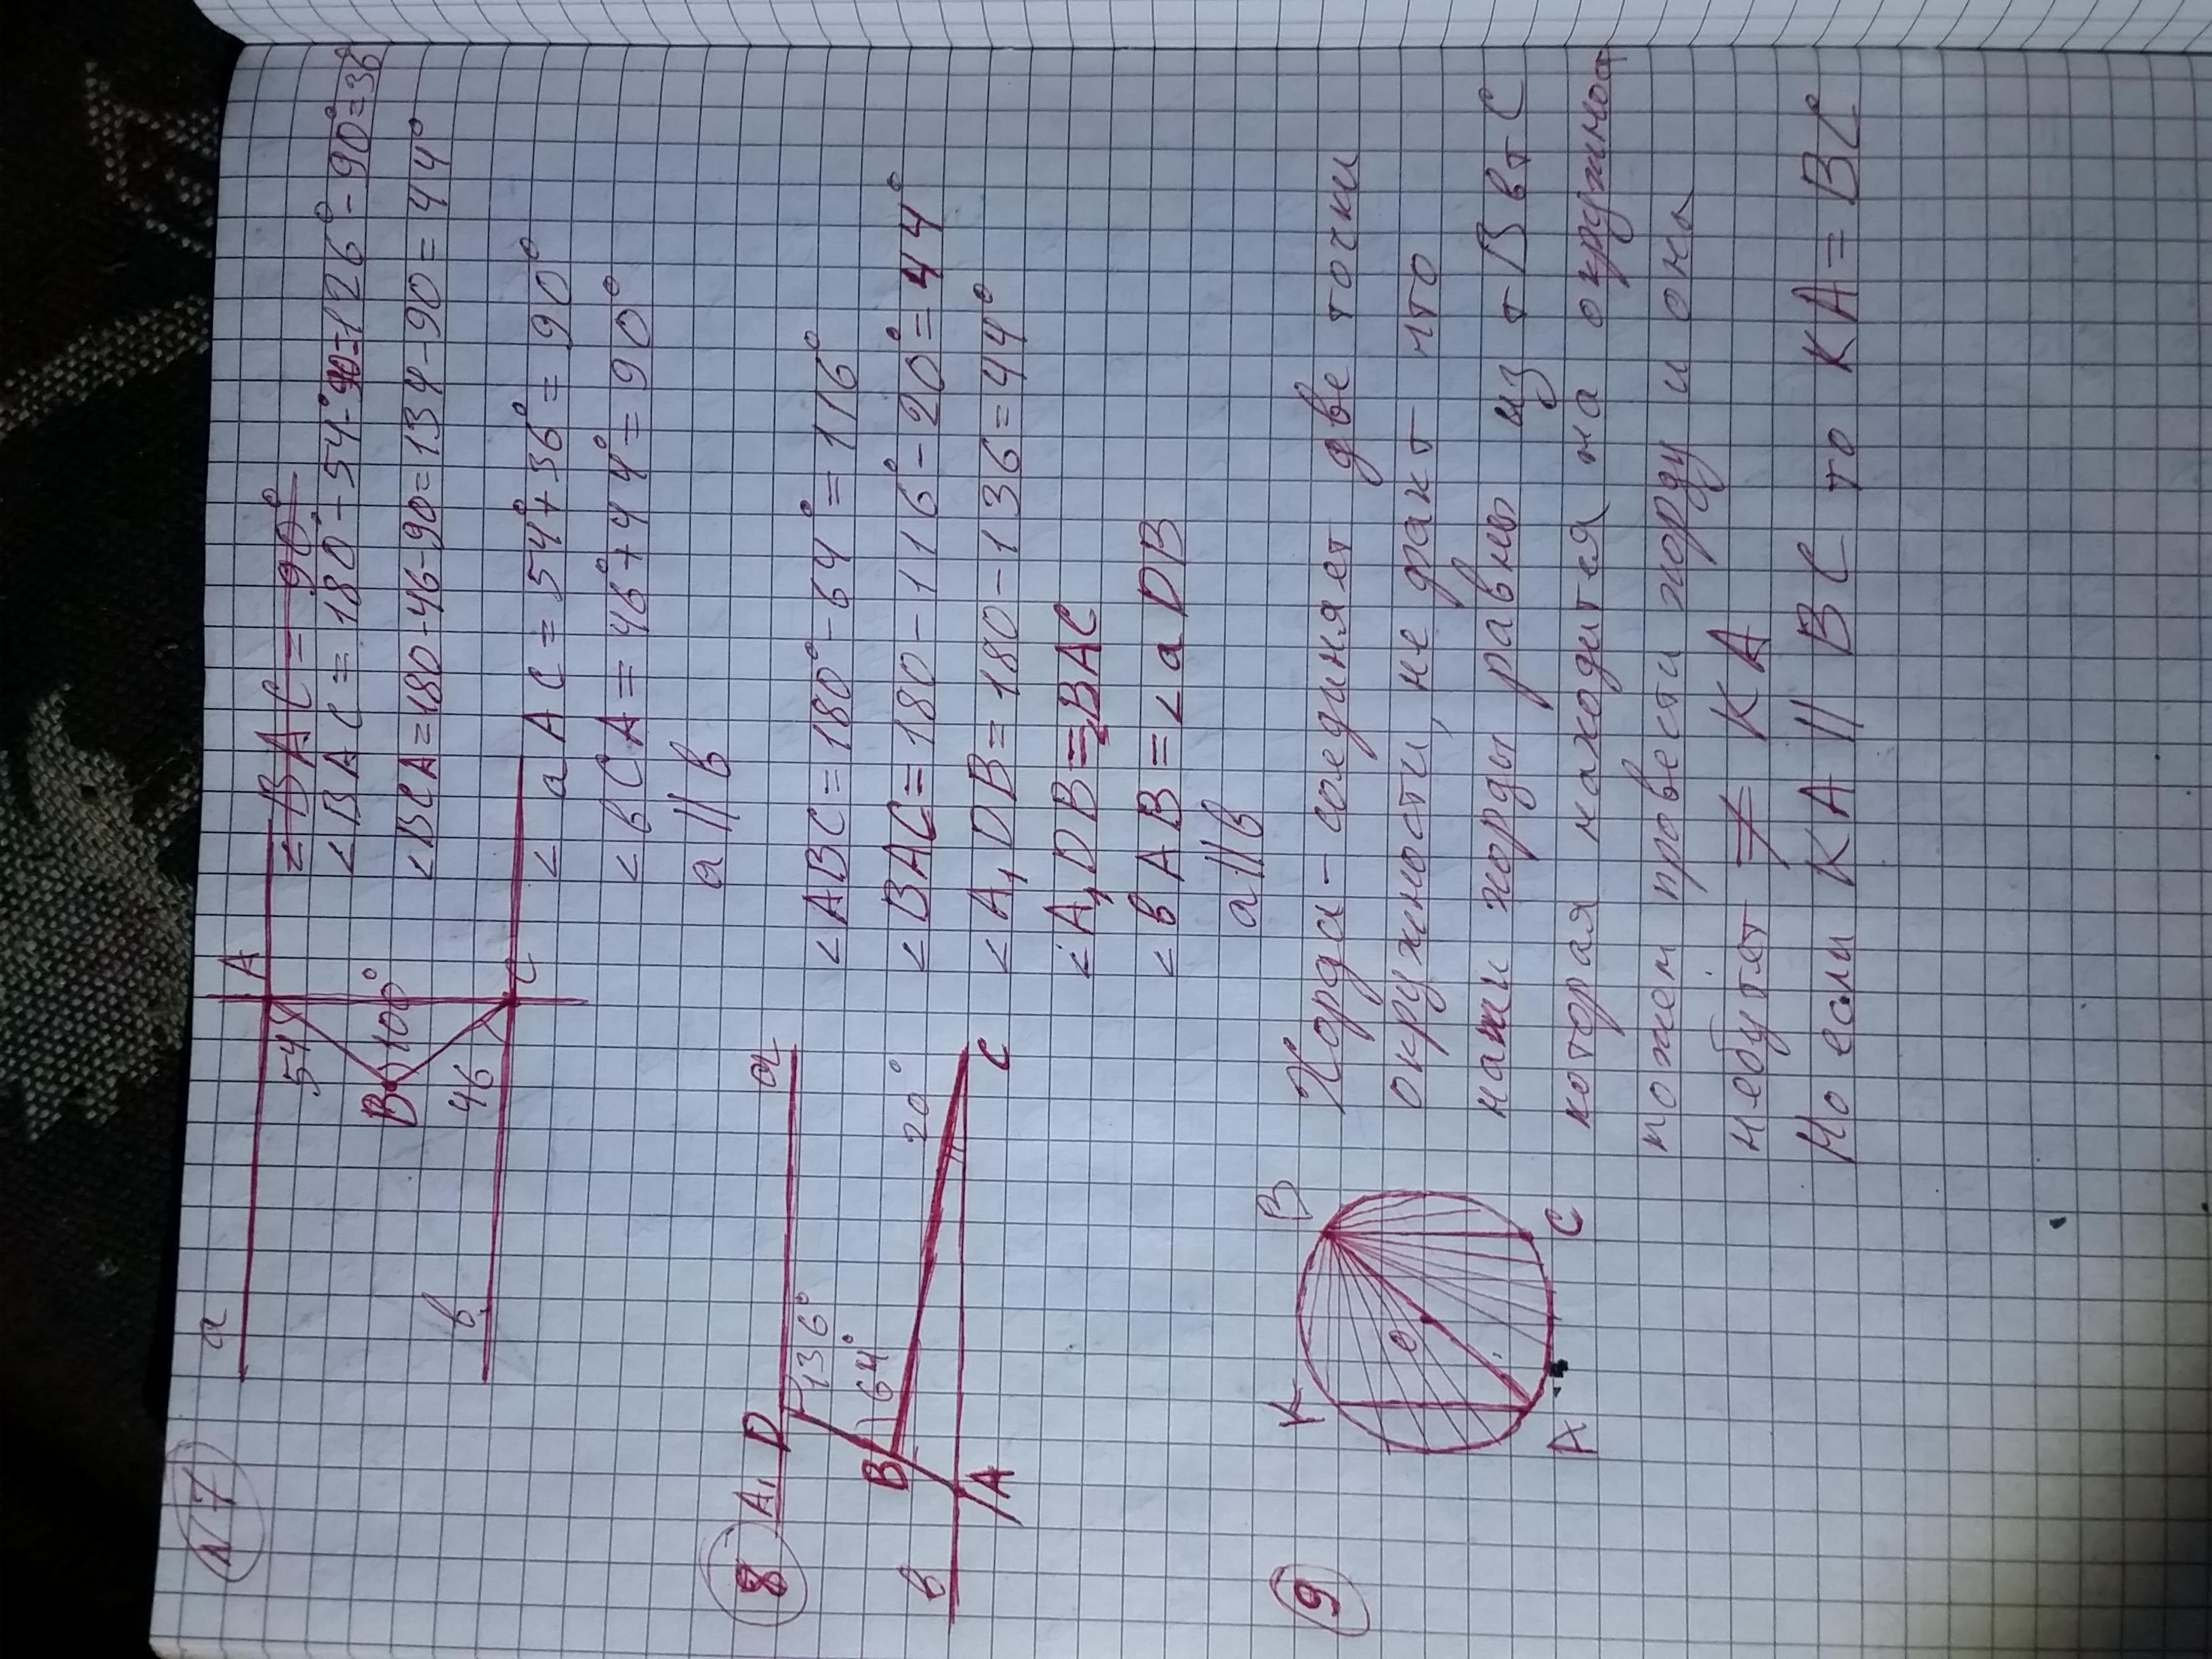 N7
a
A
54
B
100°
46
C
b
<BAC = 90°
<BAC = 180°-54°-90=126°-90°=36°
<BCA=180-46-90=134-90=44°
<aAC=54°+36°=90°
<bCA=46°+44°=90°
a||b
8
A₁ D
a
136°
64°
B
20°
b
A
C
<ABC=180°-64°=116°
<BAC=180-116°-20°=44°
<A₁DB=180-136=44°
<A₁DB=<BAC
<bAB=<aDB
a||b
9
K
B
O
A
C
Хорда-соединяет две точки
окружности, не факт что
наши хорды равны из т В в т С
которая находится на окружност
можем провести хорду и она
небудет ≠ KA
Но если KA || BC то KA=BC